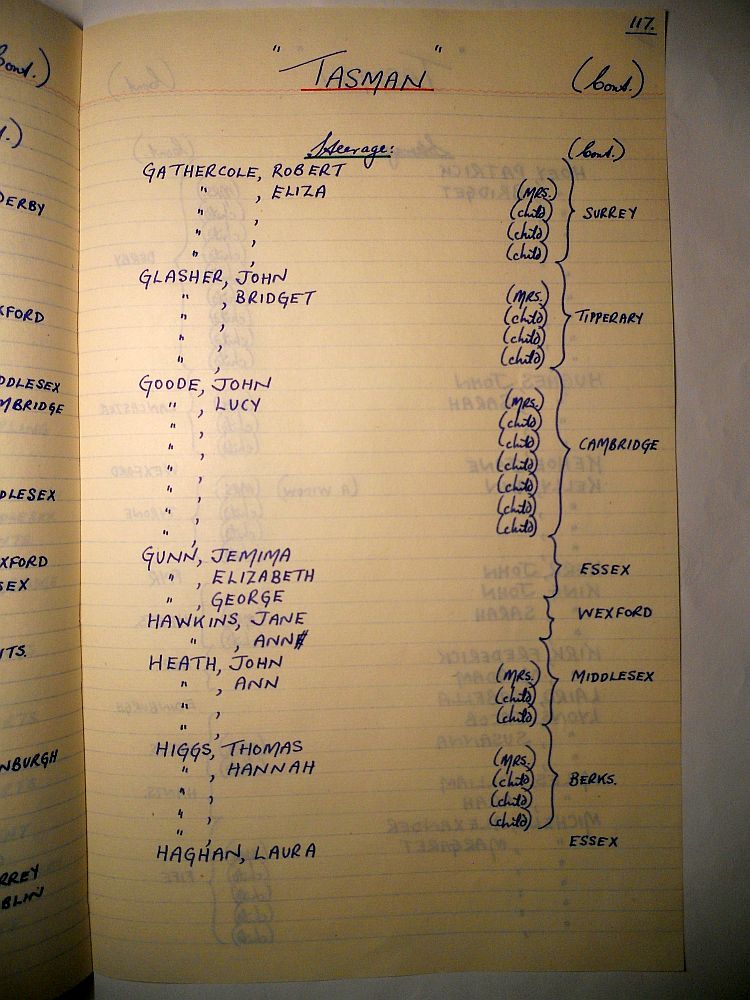 117.
"TASMAN" (Cont.)
Steerage: (Cont.)
GATHERCOLE, ROBERT
" , ELIZA (MRS.)
" , (child) SURREY
" , (child)
" , (child)
GLASHER, JOHN
" , BRIDGET (MRS.)
" , (child) TIPPERARY
" , (child)
" , (child)
GOODE, JOHN
" , LUCY (MRS.)
" , (child)
" , (child) CAMBRIDGE
" , (child)
" , (child)
" , (child)
" , (child)
GUNN, JEMIMA
" , ELIZABETH ESSEX
" , GEORGE
HAWKINS, JANE WEXFORD
" , ANN
HEATH, JOHN
" , ANN (MRS.) MIDDLESEX
" , (child)
" , (child)
HIGGS, THOMAS
" , HANNAH (MRS.)
" , (child) BERKS.
" , (child)
" , (child)
HAGHAN, LAURA ESSEX